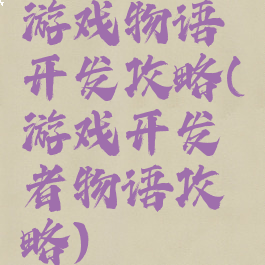 游戏物语
开发攻略(
游戏开发
者物语攻
略)